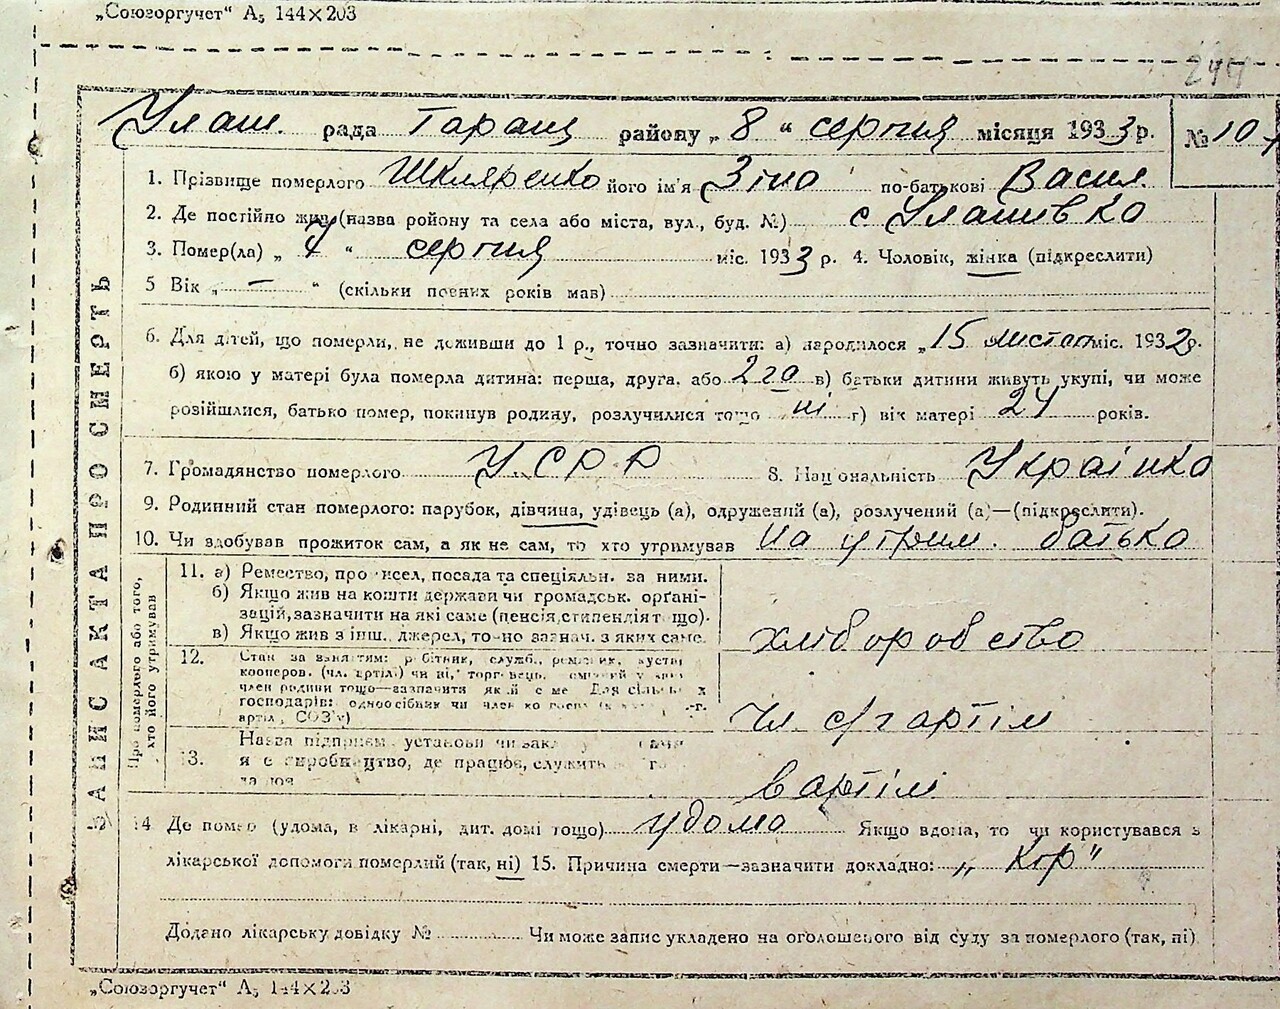 „Союзоргучет“ А₅ 144×203
244
Улаш. рада Таращ району „ 8 “ серпня місяця 1933 р. № 10
1. Прізвище померлого Шкляренко його ім'я Зіна по-батькові Васил.
2. Де постійно жив (назва району та села або міста, вул., буд. №) с Улашівка
3. Помер(ла) „ 7 “ серпня міс. 1933 р. 4. Чоловік, жінка (підкреслити)
5 Вік „ — “ (скільки повних років мав)
6. Для дітей, що померли, не доживши до 1 р., точно зазначити: а) народилося „15 листоп міс. 1932р.
б) якою у матері була померла дитина: перша, друга, або 2га в) батьки дитини живуть укупі, чи може
розійшлися, батько помер, покинув родину, розлучилися тощо ні г) вік матері 24 років.
7. Громадянство померлого У.С.Р.Р 8. Національність Українка
9. Родинний стан померлого: парубок, дівчина, удівець (а), одружений (а), розлучений (а)—(підкреслити).
10. Чи здобував прожиток сам, а як не сам, то хто утримував на утрим. батька
ЗАПИС АКТА ПРО СМЕРТЬ
Про померлого або того,
хто його утримував
11. а) Ремество, промисел, посада та спеціяльн. за ними.
б) Якщо жив на кошти держави чи громадськ. органі-
зацій, зазначити на які саме (пенсія, стипендія тощо).
в) Якщо жив з інш. джерел, точно зазнач. з яких саме.
хліборобство
12. Стан за заняттям: робітник, службов., ремісник, кустар
кооперов. (чл. артілі) чи ні, торговець,
член родини тощо—зазначити який саме Для сільськ х
господарів: одноосібник чи член
артілі, СОЗ'у)
чл с/г артілі
13. Назва підприєм. установи чи
я є виробництво, де працює, служить
в артілі
14 Де помер (удома, в лікарні, дит. домі тощо) удома Якщо вдома, то чи користувався з
лікарської допомоги померлий (так, ні) 15. Причина смерти—зазначити докладно: „ Кір"
Додано лікарську довідку № Чи може запис укладено на оголошеного від суду за померлого (так, ні)
„Союзоргучет“ А₅ 144×203